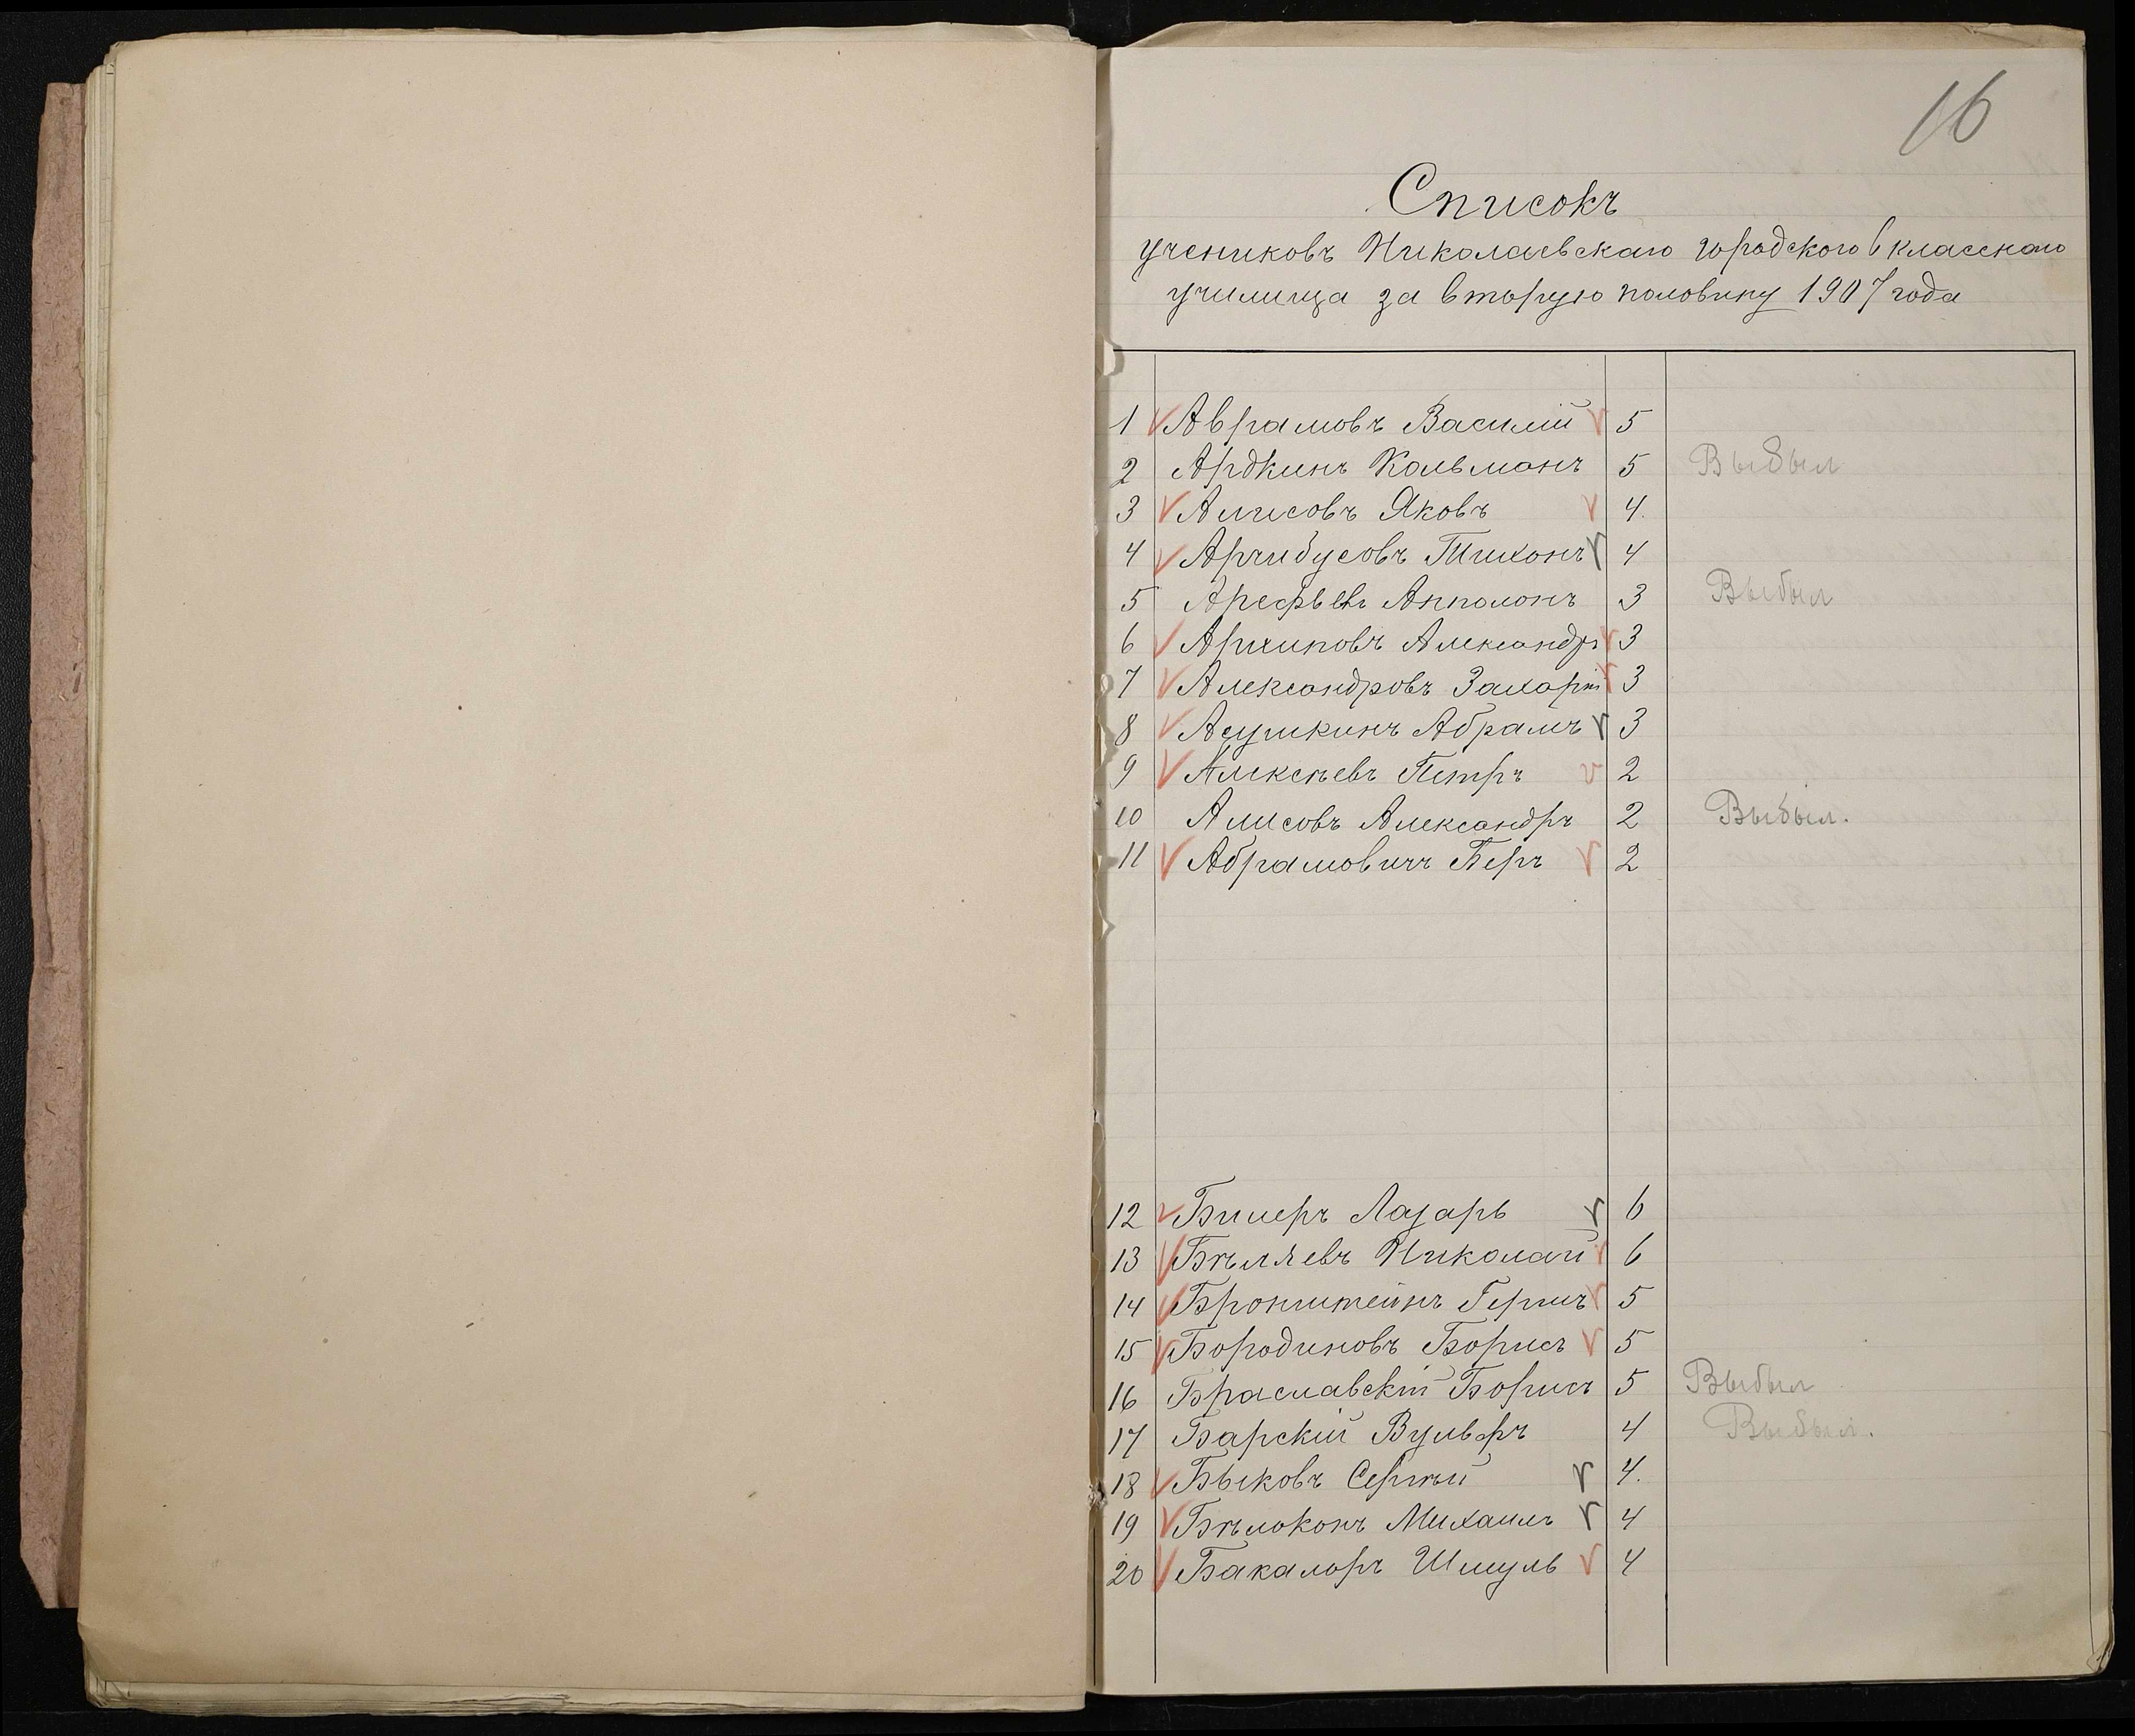 16
Списокъ
учениковъ Николаевскаго городского 6 класснаго
училища за вторую половину 1907 года
1 Аврамовъ Василій 5
2 Ардкинъ Кальманъ 5 Выбыл
3 Алисовъ Яковъ 4.
4 Арчибусовъ Тихонъ 4
5 Арефьевъ Апполонъ 3 Выбыл
6 Архиповъ Александръ 3
7 Александровъ Захарій 3
8 Асушкинъ Абрамъ 3
9 Алексѣевъ Петръ 2
10 Алисовъ Александръ 2 Выбыл.
11 Абрамовичъ Беръ 2
12 Билеръ Лазарь 6
13 Бѣляевъ Николай 6
14 Бронштейнъ Гершъ 5
15 Бородиновъ Борисъ 5
16 Браславскій Борисъ 5 Выбыл
17 Барскій Вульфъ 4 Выбыл.
18 Быковъ Сергѣй 4.
19 Бѣлоконъ Михаилъ 4
20 Бакалоръ Шмуль 4